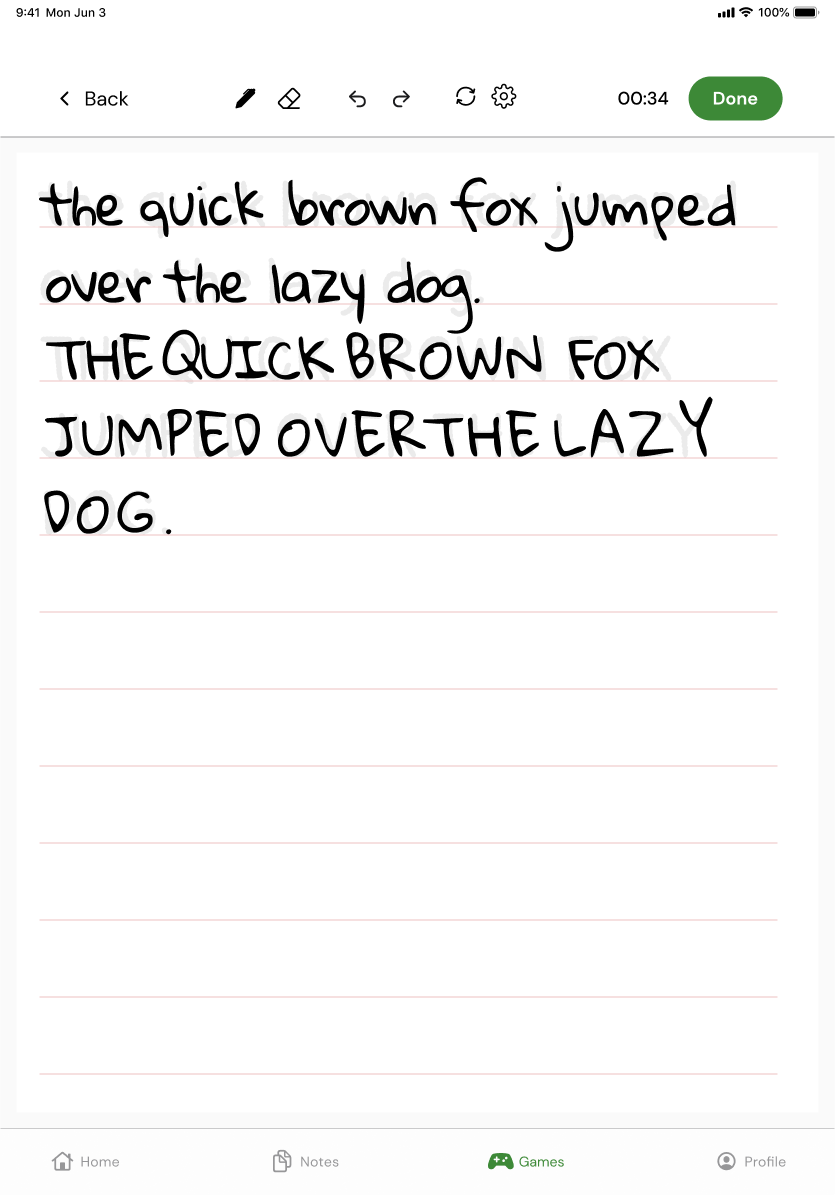 9:41 Mon Jun 3 100%
Back 00:34 Done
the quick brown fox jumped
over the lazy dog.
THE QUICK BROWN FOX
JUMPED OVER THE LAZY
DOG.
Home Notes Games Profile